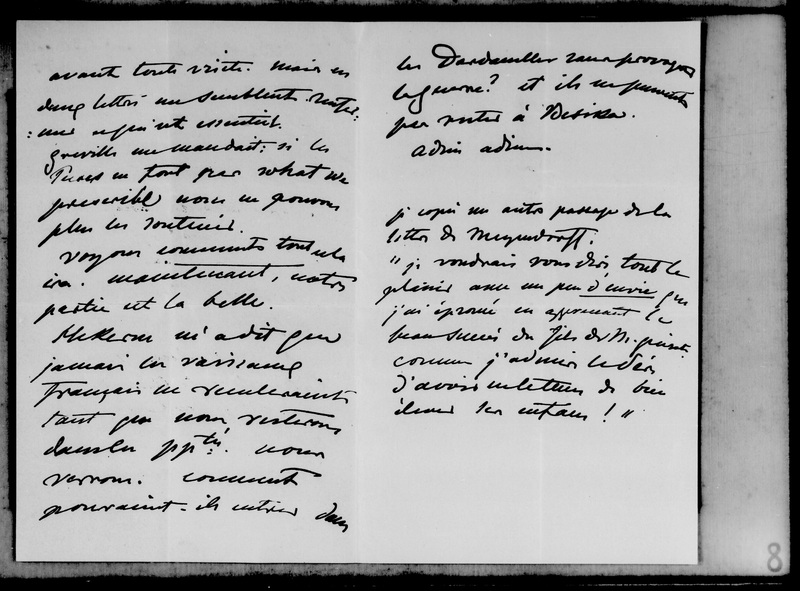 avant toute visite. mais ces
deux lettres me semblent renfer-
-mer ce qui est essentiel.
Greville me mandait: si les
Turcs ne font pas what we
prescribe nous ne pouvons
plus les soutenir.
Voyons comment tout cela
ira. maintenant, notre
partie est la belle.
Hekern m'a dit que
jamais les vaisseaux
français ne reculeraient
tant que nous resterons
dans les ppt<sup>és</sup>. nous
verrons. comment
pourraient-ils entrer dans
les Dardanelles sans provoquer
la guerre? et ils ne peuvent
pas rester à Besika.
adieu adieu.
je copie un autre passage de la
lettre de Meyendorff.
"je voudrais vous dire tout le
plaisir avec un peu d'envie que
j'ai éprouvé en apprenant le
beau succès du fils de M. Guizot
comme j'admire
d'avoir de bien
élever ses enfans!"
8